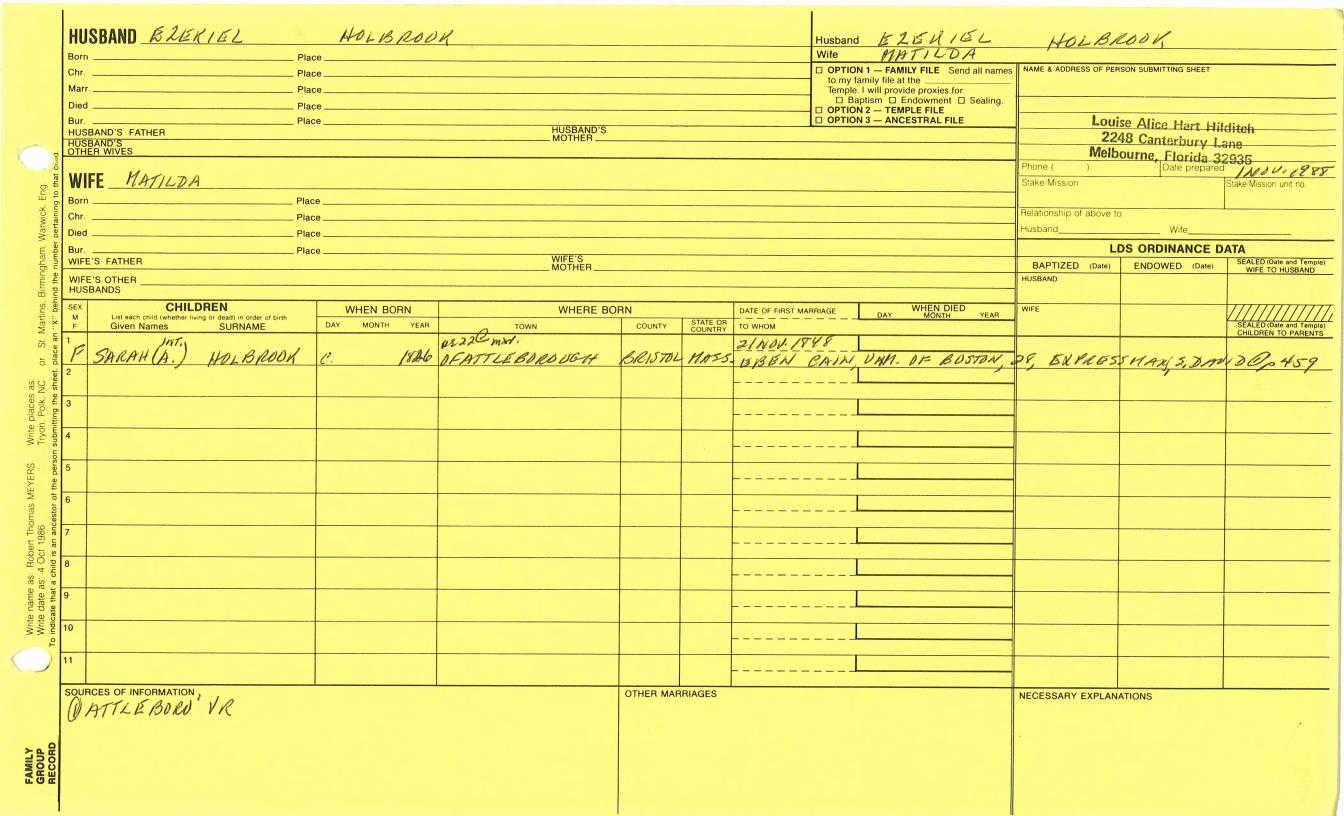 HUSBAND EZEKIEL HOLBROOK
Born Place
Chr. Place
Marr. Place
Died Place
Bur. Place
HUSBAND'S FATHER HUSBAND'S MOTHER
HUSBAND'S OTHER WIVES
WIFE MATILDA
Born Place
Chr. Place
Died Place
Bur. Place
WIFE'S FATHER WIFE'S MOTHER
WIFE'S OTHER HUSBANDS
Husband EZEKIEL HOLBROOK
Wife MATILDA
☐ OPTION 1 — FAMILY FILE Send all names
to my family file at the
Temple. I will provide proxies for
☐ Baptism ☐ Endowment ☐ Sealing.
☐ OPTION 2 — TEMPLE FILE
☐ OPTION 3 — ANCESTRAL FILE
NAME & ADDRESS OF PERSON SUBMITTING SHEET
Louise Alice Hart Hilditch
2248 Canterbury Lane
Melbourne, Florida 32935
Phone ( ) Date prepared 1 NOV. 1988
Stake/Mission Stake/Mission unit no.
Relationship of above to
Husband Wife
LDS ORDINANCE DATA
BAPTIZED (Date) ENDOWED (Date) SEALED (Date and Temple) WIFE TO HUSBAND
HUSBAND
WIFE
SEALED (Date and Temple) CHILDREN TO PARENTS
SEX M F
CHILDREN
List each child (whether living or dead) in order of birth
Given Names SURNAME
WHEN BORN
DAY MONTH YEAR
WHERE BORN
TOWN COUNTY STATE OR COUNTRY
DATE OF FIRST MARRIAGE
TO WHOM
WHEN DIED
DAY MONTH YEAR
1 INT. 22 @ 21 NOV. 1848
F SARAH (A.) HOLBROOK C. 1826 OF ATTLEBOROUGH BRISTOL MASS. OBEN CAIN, UNM. OF BOSTON, 28, EXPRESSMAN, S, DAVID @ p 459
2
3
4
5
6
7
8
9
10
11
SOURCES OF INFORMATION
① ATTLEBORO' VR
OTHER MARRIAGES
NECESSARY EXPLANATIONS
Write name as: Robert Thomas MEYERS Write places as: Tryon, Polk, NC or St. Martins, Birmingham, Warwick, Eng.
Write date as: 4 Oct 1986
To indicate that a child is an ancestor of the person submitting the sheet, place an "X" behind the number pertaining to that child.
FAMILY
GROUP
RECORD